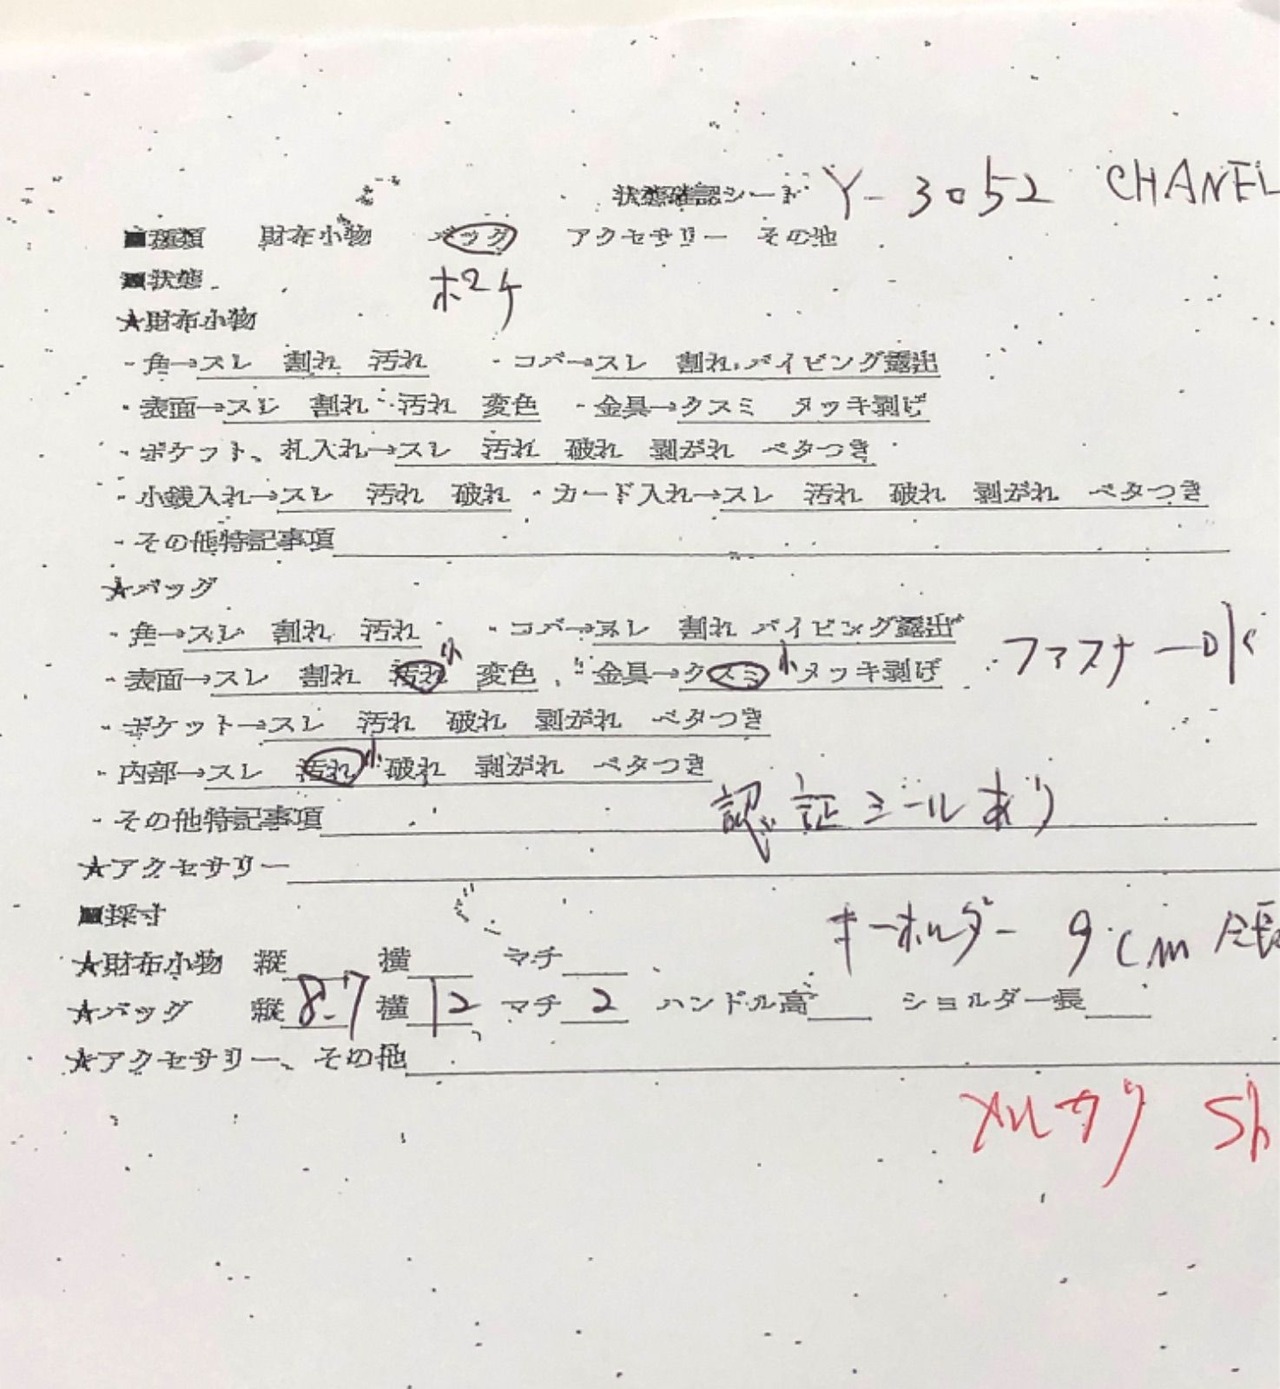 状態確認シート Y-3052 CHANEL
■種類 財布小物 バッグ アクセサリー その他
■状態 ポーチ
★財布小物
・角→スレ 割れ 汚れ ・コバ→スレ 割れ パイピング露出
・表面→スレ 割れ 汚れ 変色 ・金具→クスミ メッキ剥げ
・ポケット、札入れ→スレ 汚れ 破れ 剥がれ ベタつき
・小銭入れ→スレ 汚れ 破れ ・カード入れ→スレ 汚れ 破れ 剥がれ ベタつき
・その他特記事項
★バッグ
・角→スレ 割れ 汚れ ・コバ→スレ 割れ パイピング露出
・表面→スレ 割れ 汚れ 小 変色 ・金具→クスミ 小 メッキ剥げ ファスナーOK
・ポケット→スレ 汚れ 破れ 剥がれ ベタつき
・内部→スレ 汚れ 小 破れ 剥がれ ベタつき
・その他特記事項 認証シールあり
★アクセサリー
■採寸
キーホルダー 9cm 全長
★財布小物 縦 横 マチ
★バッグ 縦 8.7 横 12 マチ 2 ハンドル高 ショルダー長
★アクセサリー、その他
メルカリ Sh